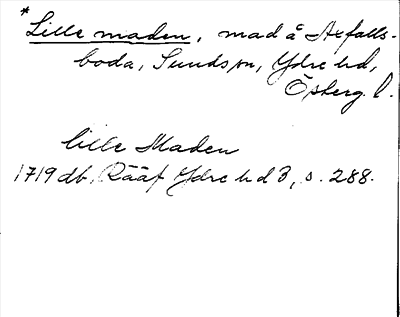 * Lille maden, mad å Axfalls-
boda, Sunds sn, Ydre hd,
Östergl.
lille Maden
1719 db, Rääf Ydre hd 3, s. 288.